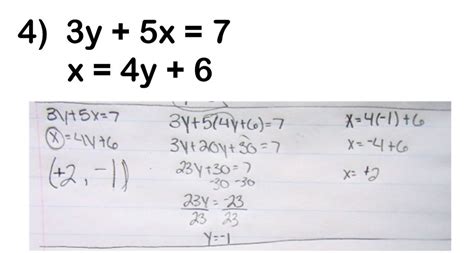 4) 3y + 5x = 7
x = 4y + 6
3y+5x=7
x=4y+6
(+2, -1)
3y+5(4y+6)=7
3y+20y+30=7
23y+30=7
-30 -30
23y=-23
23 23
y=-1
x=4(-1)+6
x=-4+6
x=+2